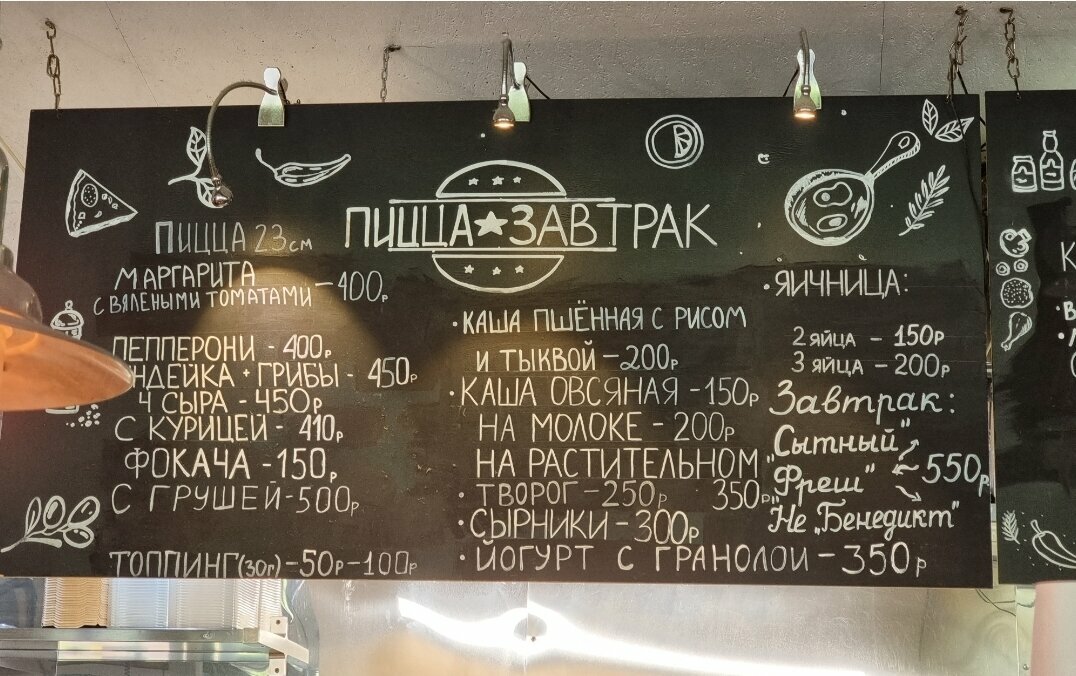 ПИЦЦА★ЗАВТРАК
ПИЦЦА 23 см
МАРГАРИТА
С ВЯЛЕНЫМИ ТОМАТАМИ – 400р
ПЕППЕРОНИ - 400р
ИНДЕЙКА + ГРИБЫ - 450р
4 СЫРА - 450р
С КУРИЦЕЙ - 410р
ФОКАЧА - 150р
С ГРУШЕЙ - 500р
ТОППИНГ (30г) - 50р - 100р
·КАША ПШЁННАЯ С РИСОМ
И ТЫКВОЙ – 200р
·КАША ОВСЯНАЯ - 150р
НА МОЛОКЕ - 200р
НА РАСТИТЕЛЬНОМ
350р
·ТВОРОГ – 250р
·СЫРНИКИ - 300р
·ЙОГУРТ С ГРАНОЛОЙ – 350р
·ЯИЧНИЦА:
2 ЯЙЦА – 150р
3 ЯЙЦА – 200р
Завтрак:
"Сытный"
"Фреш" 550р
"Не „Бенедикт"